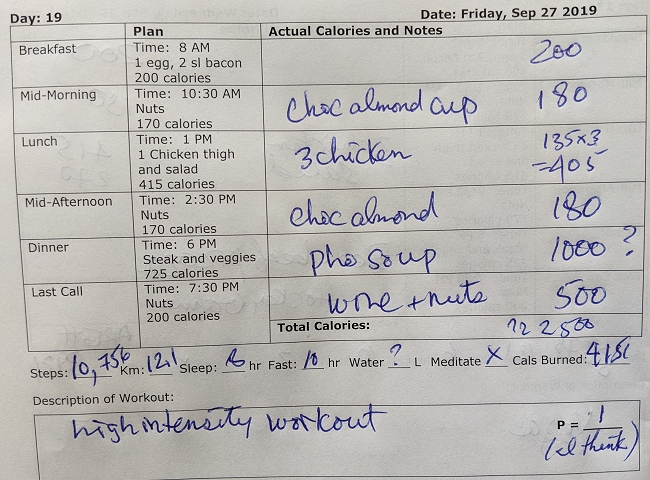 Day: 19 Date: Friday, Sep 27 2019
Plan Actual Calories and Notes
Breakfast Time: 8 AM 200
1 egg, 2 sl bacon
200 calories
Mid-Morning Time: 10:30 AM
Nuts choc almond cup 180
170 calories
Lunch Time: 1 PM 135x3
1 Chicken thigh 3 chicken =405
and salad
415 calories
Mid-Afternoon Time: 2:30 PM
Nuts choc almond 180
170 calories
Dinner Time: 6 PM
Steak and veggies pho soup 1000 ?
725 calories
Last Call Time: 7:30 PM
Nuts wine + nuts 500
200 calories
Total Calories: 2500
Steps: 10,756 Km: 12.1 Sleep: hr Fast: 10 hr Water ? L Meditate X Cals Burned:
Description of Workout:
high intensity workout P = 1
(I think)